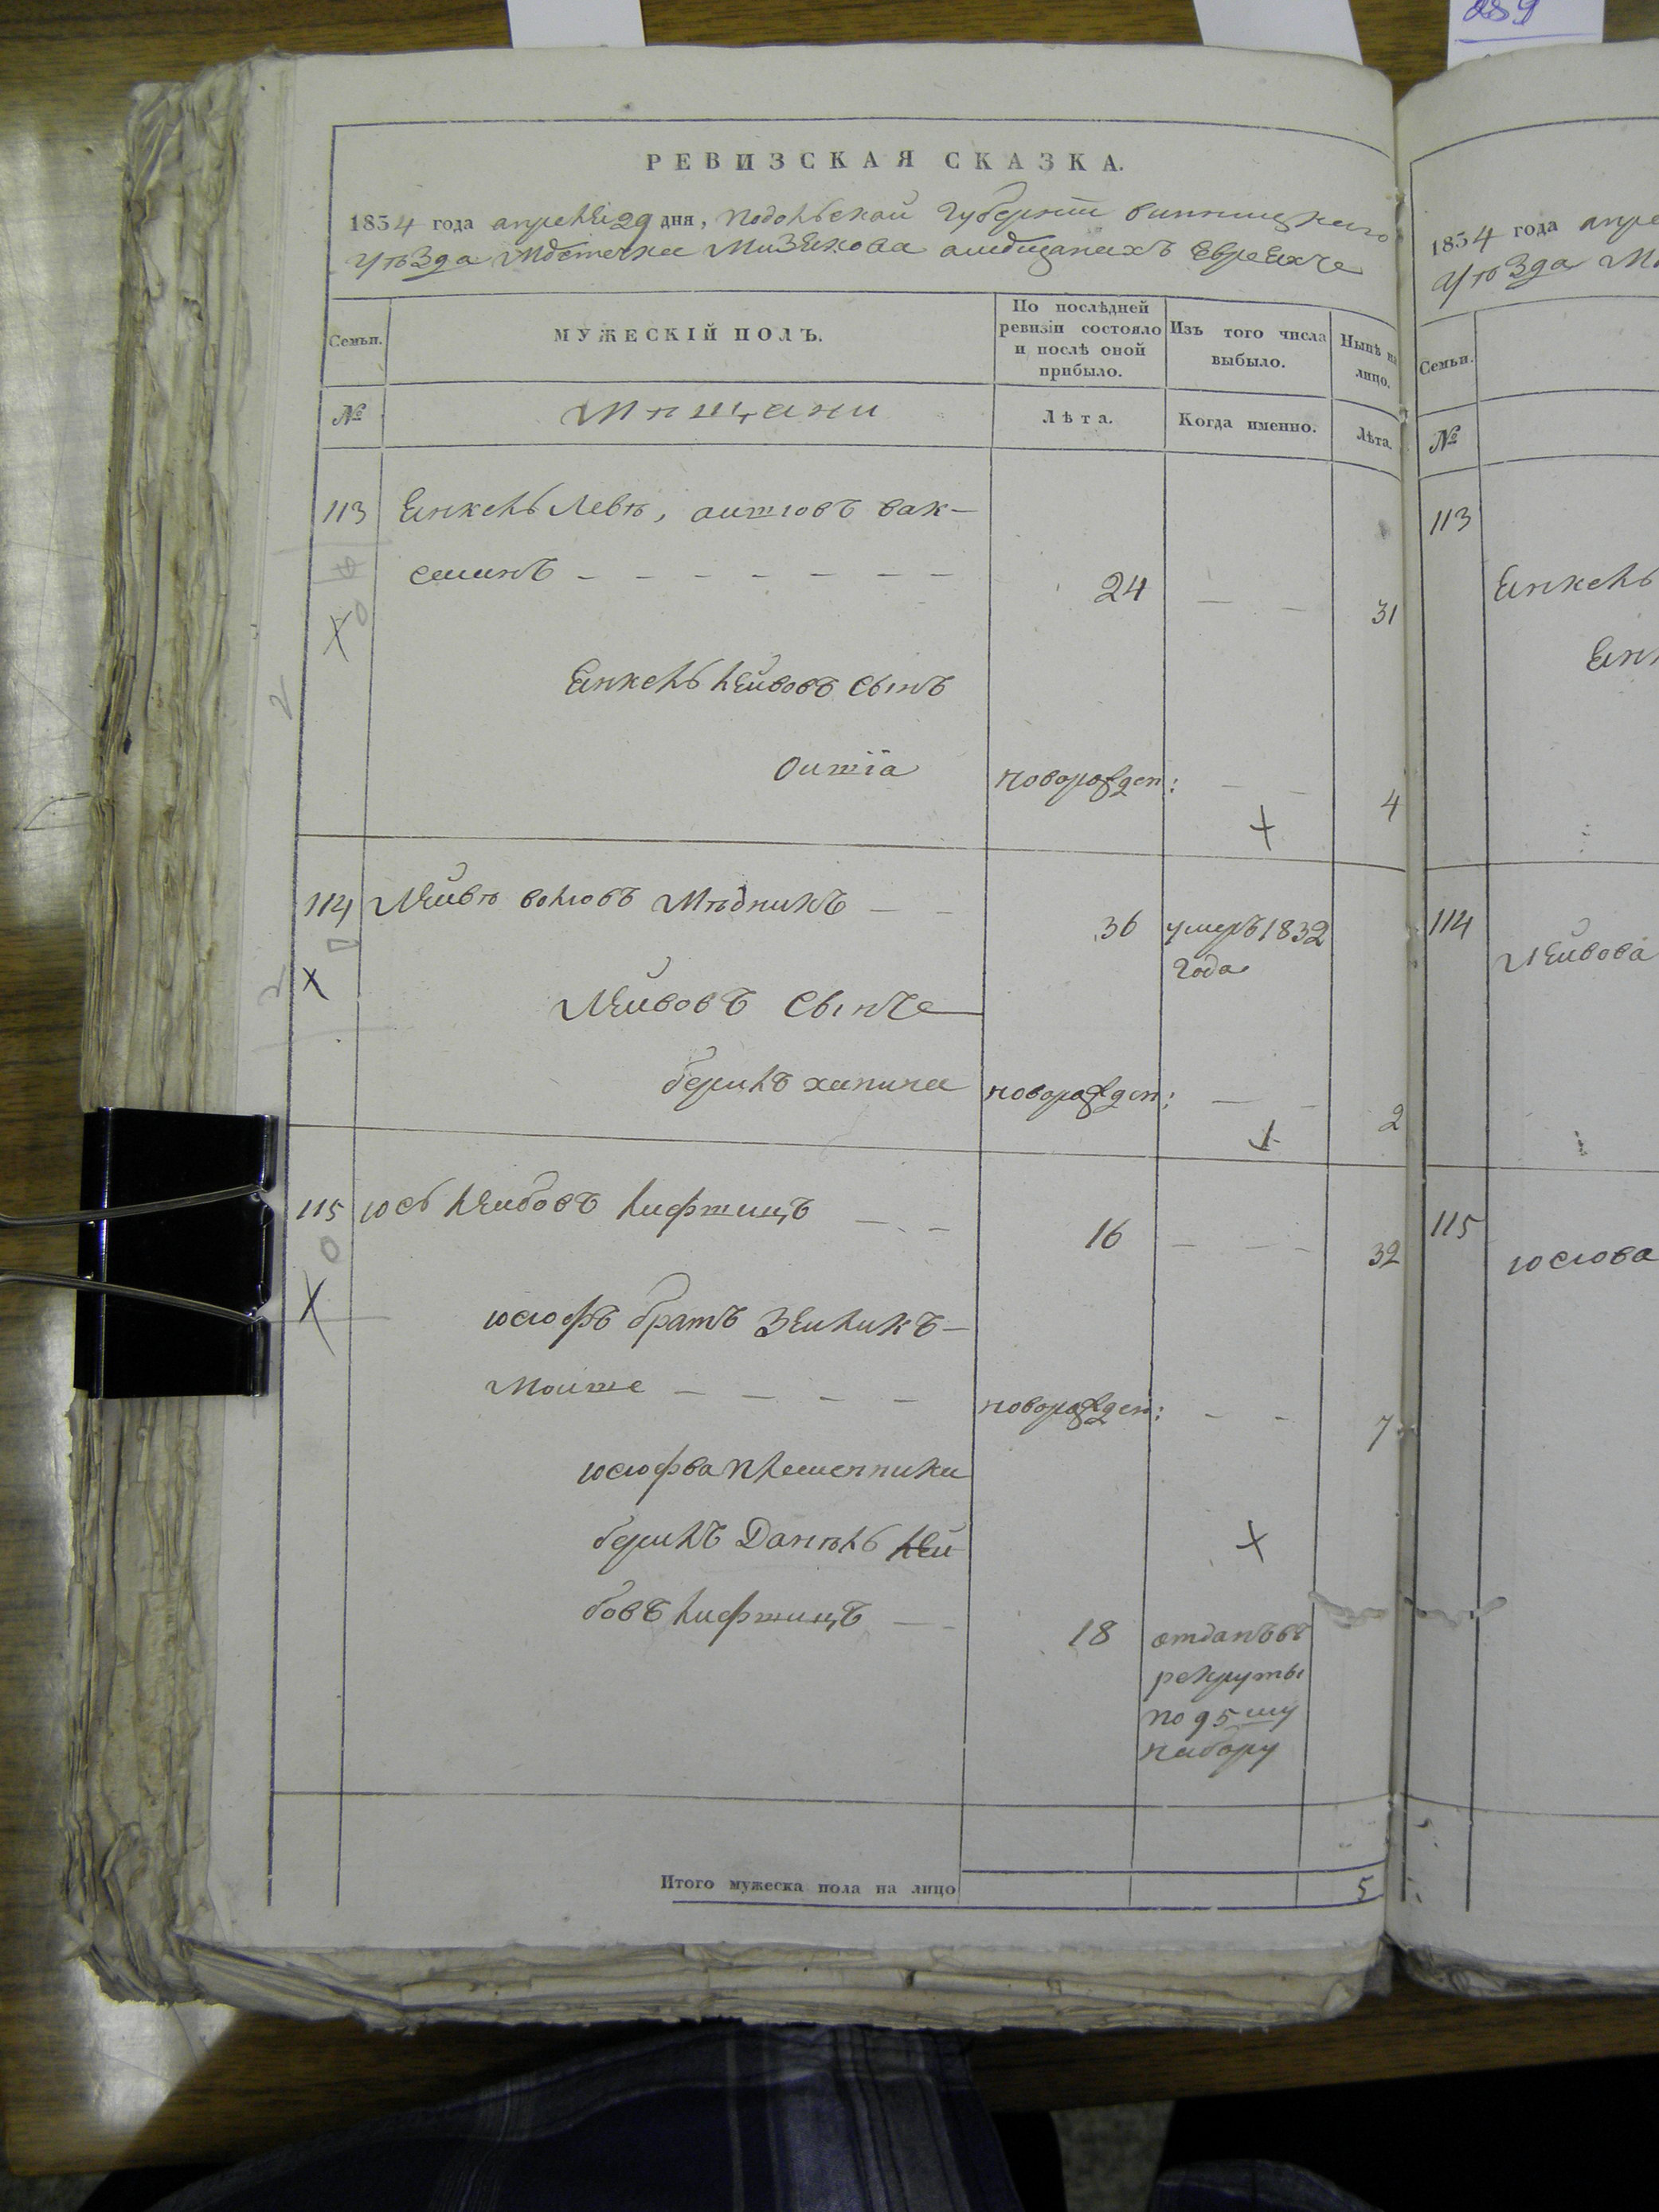 289
РЕВИЗСКАЯ СКАЗКА.
1854 года апреля 29 дня, Подольской Губернии винницкаго
уѣзда Мѣстечка Мизякова омѣщанахъ Евреяхъ
Семьи.
МУЖЕСКІЙ ПОЛЪ.
По послѣдней ревизіи состояло и послѣ оной прибыло.
Изъ того числа выбыло.
Нынѣ на лицо.
№
Мѣщани
Лѣта.
Когда именно.
Лѣта.
113 Янкель Левъ, ошіовъ вак-
сманъ — — — — — — — 24 — — 31
Янкель Лейвовъ сынъ
ошіа новорожден: — — 4
114 Лейвъ волювъ Мѣдникъ — — 36 умеръ 1832
года
Лейвовъ сынъ
берилъ новорожден: — — 2
115 юсь Лейбовъ Лифшицъ — — 16 — — — 32
юсюфъ братъ Зейликъ—
Мошше — — — — новорожден: — — 7
юсюфва племенники
берилъ Данѣль лей
бовъ Лифшицъ — — 18 отданъ въ
рекруты
по 95 му
набору
Итого мужеска пола на лицо 5
1854 года апре
уѣзда Ми
Семьи.
№
113
Янкель
Янк
114
Лейвова
115
юсюва